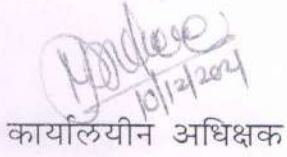 10/12/2021
कार्यालयीन अधिक्षक